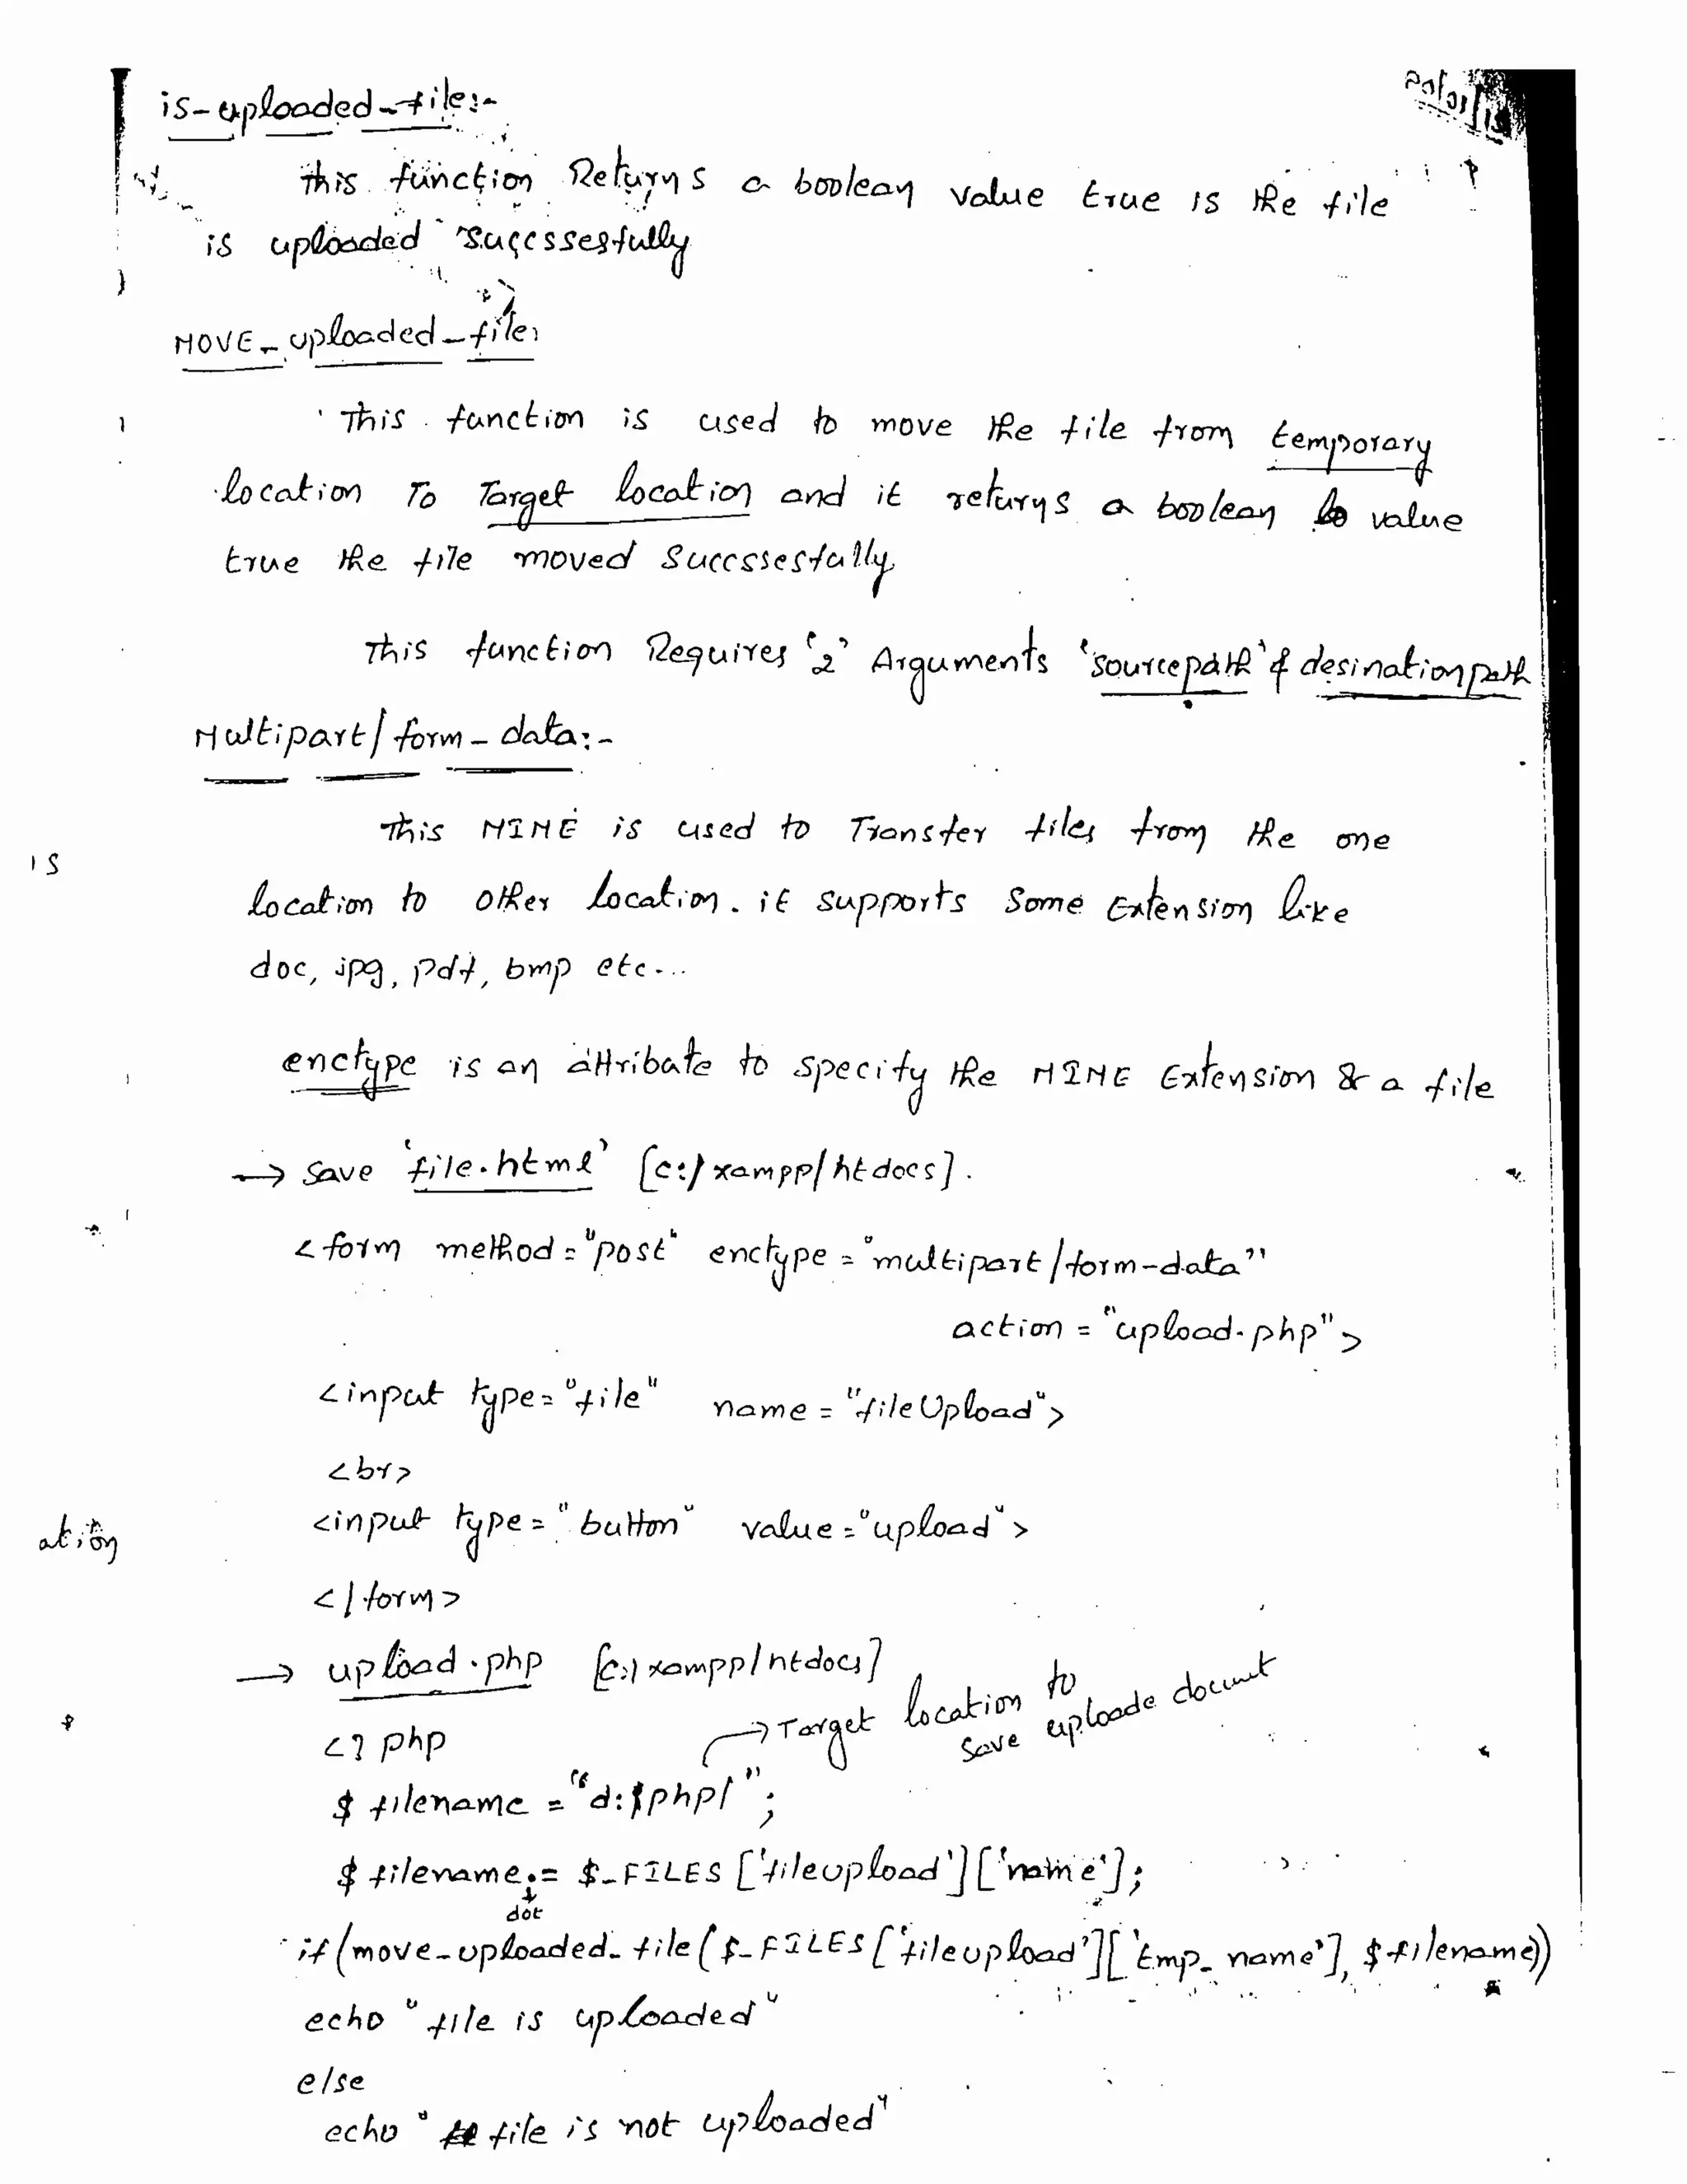 is-uploaded-file:-
This function Returns a boolean value true is the file
is uploaded Succssesfully
MOVE_uploaded_file:
This function is used to move the file from temporary
location To Target location and it returns a boolean value
true the file moved Succssesfully
This function Requires '2' Arguments 'sourcepath' & desinationpath
Multipart/form-data:-
This MIME is used to Transfer files from the one
is
location to other location. it supports Some Extension like
doc, jpg, pdf, bmp etc...
enctype is an attribute to specify the MIME Extension & a file
→ Save 'file.html' [c:/xampp/htdocs].
<form method="post" enctype="multipart/form-data"
action="upload.php">
<input type="file" name="fileUpload">
<br>
<input type="button" value="upload">
ation
</form>
→ upload.php [c:/xampp/htdocs]
→ Target location to
save uploade documt
<? php
$filename = "d:/php/";
$filename.= $_FILES['fileupload']['name'];
dot
if(move_uploaded_file($_FILES['fileupload']['tmp_name'], $filename))
echo "file is uploaded"
else
echo "file is not uploaded"